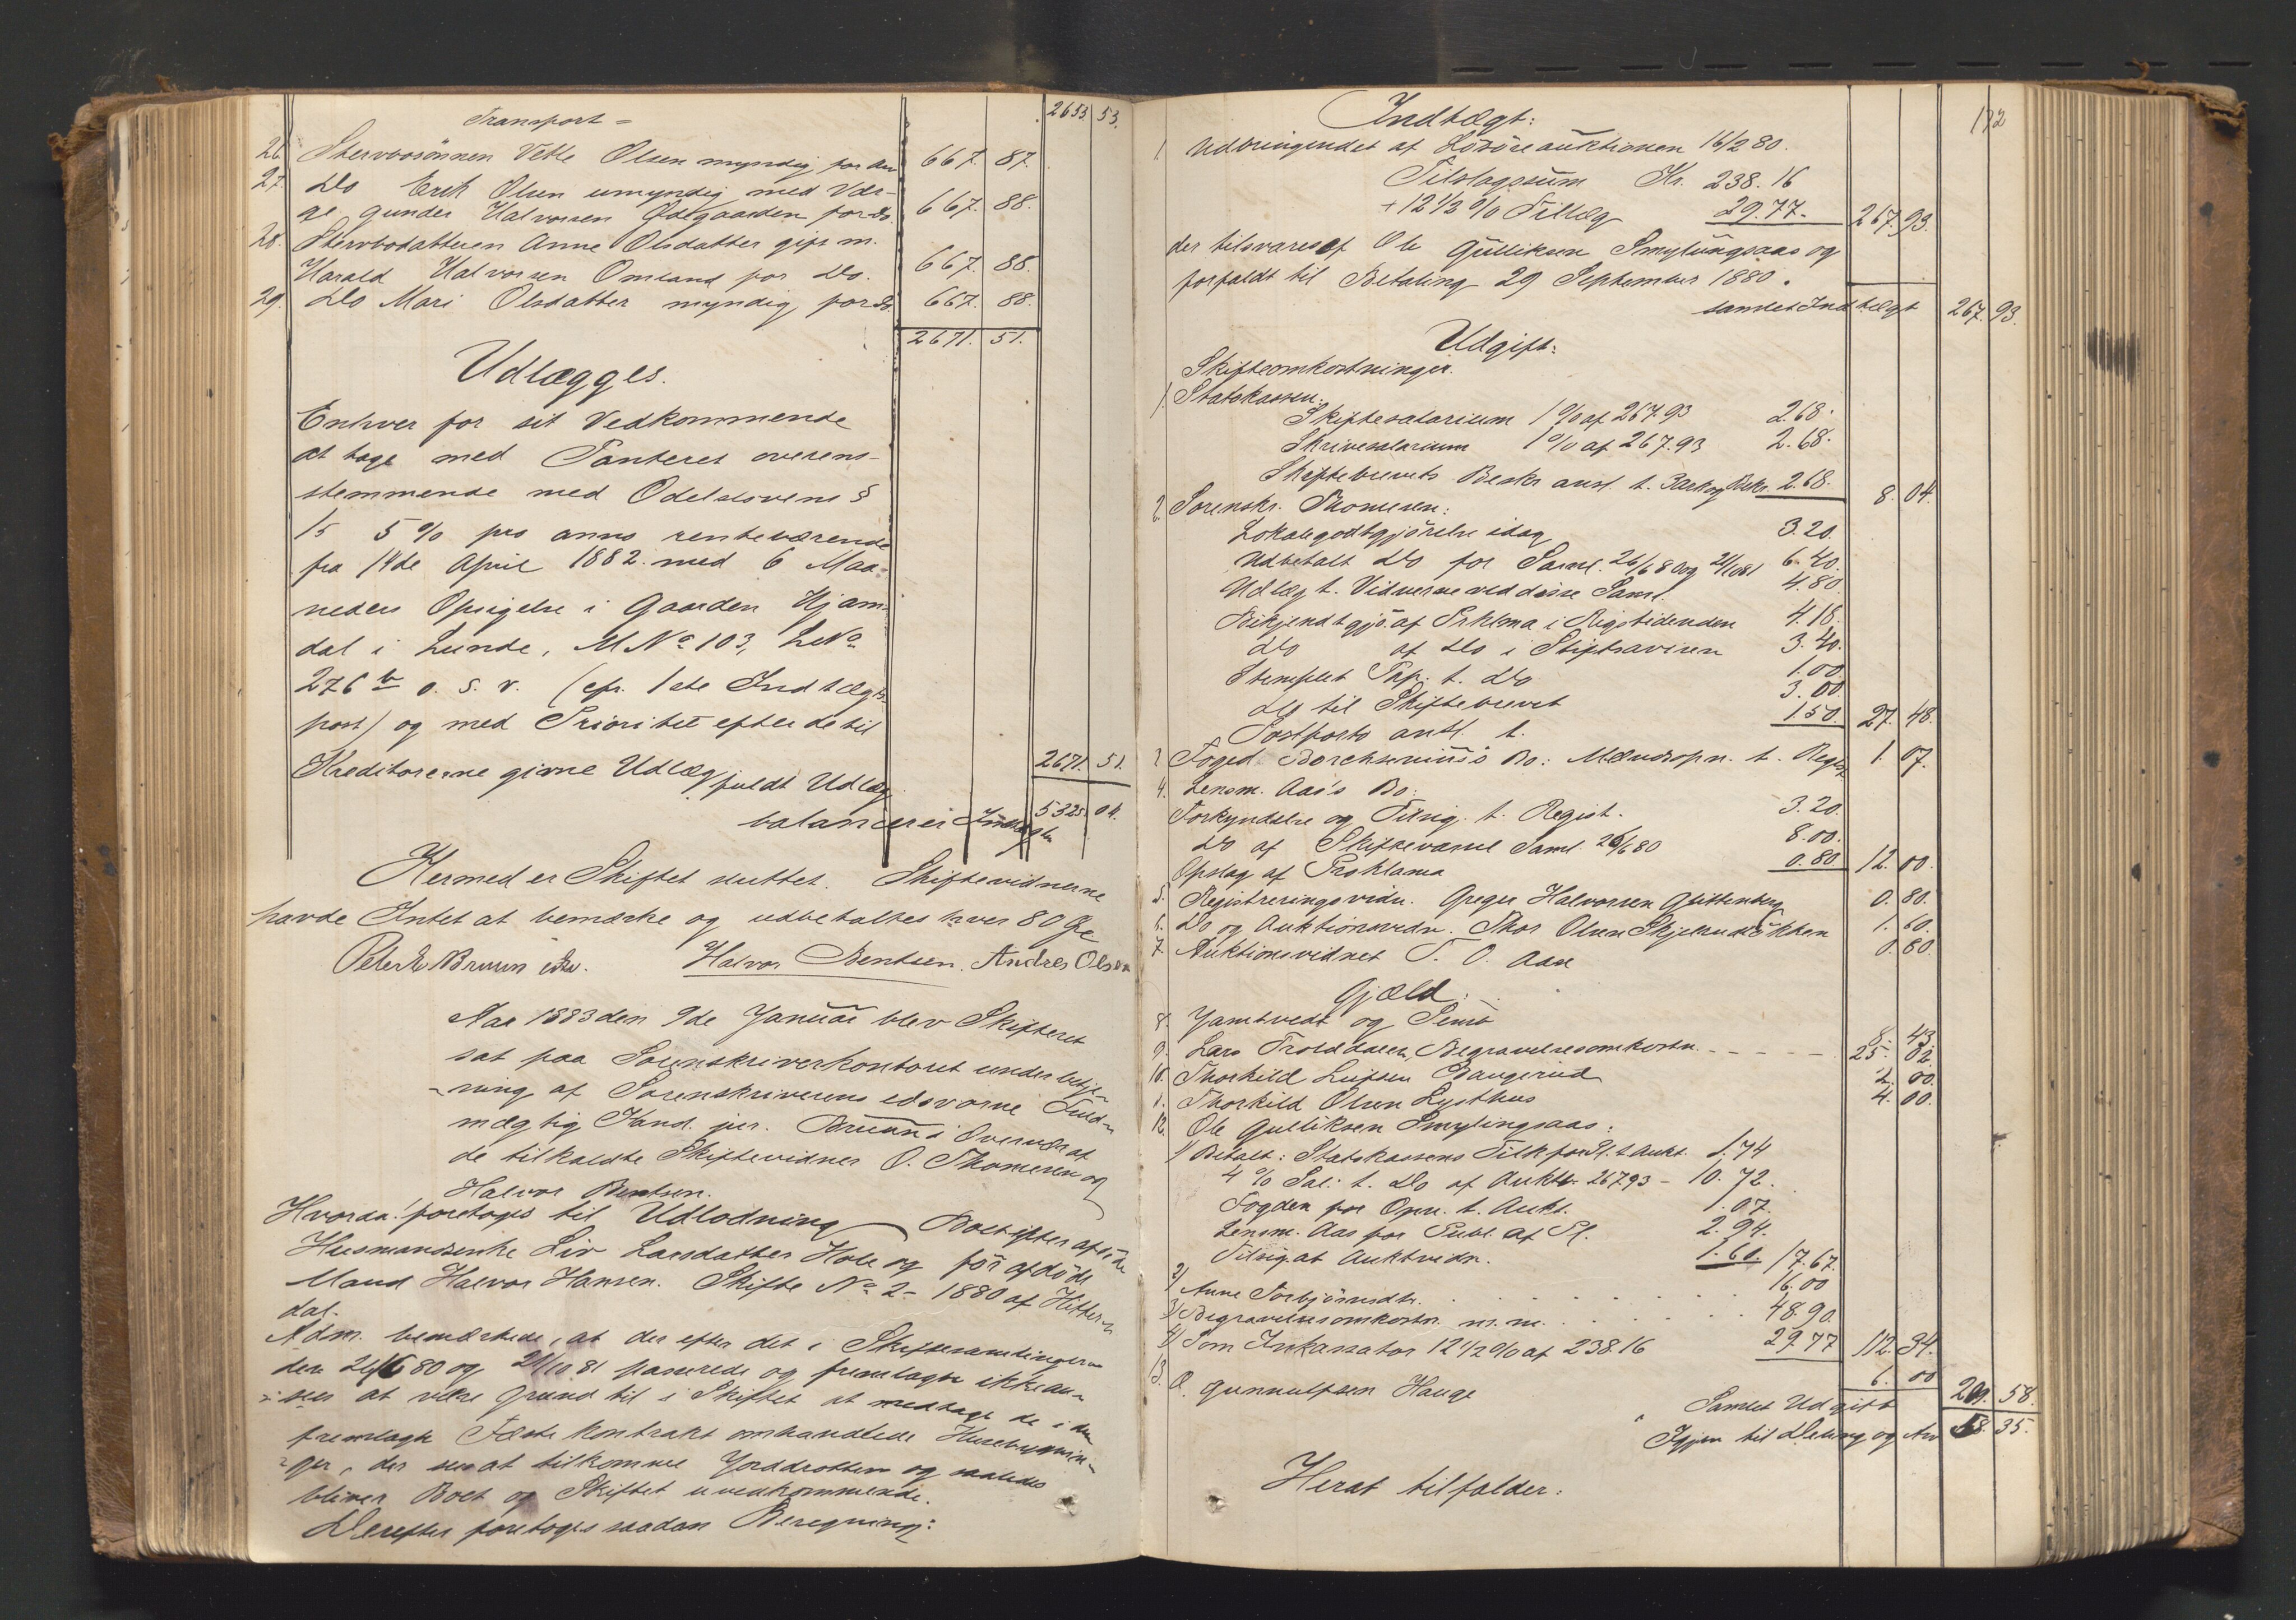 Transport = 2653. 53.
26. Stervbosønnen Vetle Olsen myndig for do 667. 87.
27. Do Erik Olsen umyndig med Vær-
ge Gunder Halvorsen Ødegaarden for do. 667. 88.
28. Stervbodatteren Anne Olsdatter gift m.
Harald Halvorsen Omland for Do. 667. 88.
29. Do Mari Olsdatter myndig for do. 667. 88.
2671. 51.
Udlægges.
Enhver for sit Vedkommende
at tage med Panteret overens-
stemmende med Odelslovens §
15 5 % pro anno rentebærende
fra 14de April 1882 med 6 Maa-
neders Opsigelse i Gaarden Hjam-
dal i Lunde, M No 103, L No
276 b o. s. v. (cfr. 1ste Indtægts-
post) og med Prioritet efter de til
Kreditorerne givne Udlæg fuldt Udlæg 2671. 51.
balancerer Indtægten 5325. 04.
Hermed er Skiftet sluttet. Skiftevidnerne
havde Intet at bemærke og udbetaltes hver 80 Øre
Peter Bruun Halvor Bentsen. Andres Olsen
Aar 1883 den 9de Januar blev Skifteret
sat paa Sorenskriverkontoret under betje-
ning af Sorenskriverens edsvorne Fuld-
mægtig Kand. jur. Bruun i Overvær af
de tilkaldte Skiftevidner O. Thomesen og
Halvor Bentsen.
Hvorda: foretoges til Udlodning Boet efter afdøde
Husmandsenke Liv Larsdatter Hole og før afdøde
Mand Halvor Hansen. Skifte No 2 - 1880 af Hitter-
dal.
Adm. bemærkede, at der efter det i Skiftesamlingerne
den 26/6 80 og 21/10 81 passerede og fremlagte ikke an-
sees at være Grund til i Skiftet at medtage de i den
fremlagte Fæstekontrakt omhandlede Husebygnin-
ger, der sees at tilkomme Jorddrotten og saaledes
bliver Boet og Skiftet uvedkommende.
Derefter foretoges saadan Beregning:
132
Indtægt:
1. Udbringendet af Løsøreauktionen 16/2 80.
Tilslagssum Kr. 238. 16
+ 12 1/2 % Tillæg 29. 77. 267. 93.
der tilsvares af Ole Gulliksen Smylingsaas og
forfaldt til Betaling 29 September 1880.
samlet Indtægt 267. 93.
Udgift:
Skifteomkostninger.
1. Statskassen:
Skiftesalarium 1 % af 267. 93 2. 68.
Skrivesalarium 1 % af 267. 93 2. 68.
Skiftebrevets Beskr. ansl. t. 3 ark og Bekr. 2. 68. 8. 04.
2. Sorenskr. Thomesen:
Lokalegodtgjörelse idag 3. 20.
Udbetalt Do for Saml. 26/6 80 og 21/10 81 6. 40.
Udlæg t. Vidnerne ved disse Saml. 4. 80
Bekjendtgjö. af Prklma i Rigstidenden 4. 18.
Do af Do i Stiftsavisen 3. 40.
Stemplet Pap. t. Do 1. 00.
Do til Skiftebrevet 3. 00.
Postporto antl. t. 1. 50. 27. 48.
3. Foged Borchsenius's Bo: Mændsopn. t. Regist. 1. 07.
4. Lensm. Aas's Bo:
Forkyndelse og Tilsig. t. Regist. 3. 20.
Do af Skiftevarsel Saml. 26/6 80 8. 00.
Opslag af Proklama 0. 80 12. 00.
5. Registreringsvidn. Greger Halvorsen Glittenberg 0. 80.
6. Do og Auktionsvidn. Thor Olsen 1. 60.
7. Auktionsvidnet T. O. Aase 0. 80.
Gjæld:
8. Jamtvedt og 8. 43.
9. Lars Trolddalen, Begravelsesomkostn. 25. 02.
10. Thorkild Leifsen Baugerud 2. 00.
11. Thorkild Olsen Lysthus 4. 00.
12. Ole Gulliksen Smylingsaas:
1) Betalt: Statskassens Tilk. for Pl. t. Aukt. 1. 74
4 % Sal. t. Do af Auktb. 267 93 - 10. 72.
Fogden for Opn. t. Aukt. 1. 07.
Lensm. Aas for Publ. af Pl. 2. 94.
Tilsig. af Auktvidn. 1. 60. 17. 67.
2) Anne Torbjörnsdtr. 16. 00
3) Begravelsesomkostn. m. m. 48. 90.
4) Som Inkassator 12 1/2 % af 238. 16 29. 77 112. 34.
13. O. Gunnulfsen Hauge 6. 00
Samlet Udgift 209. 58.
Igjen til Deling og Arv 58. 35.
Heraf tilfalder: